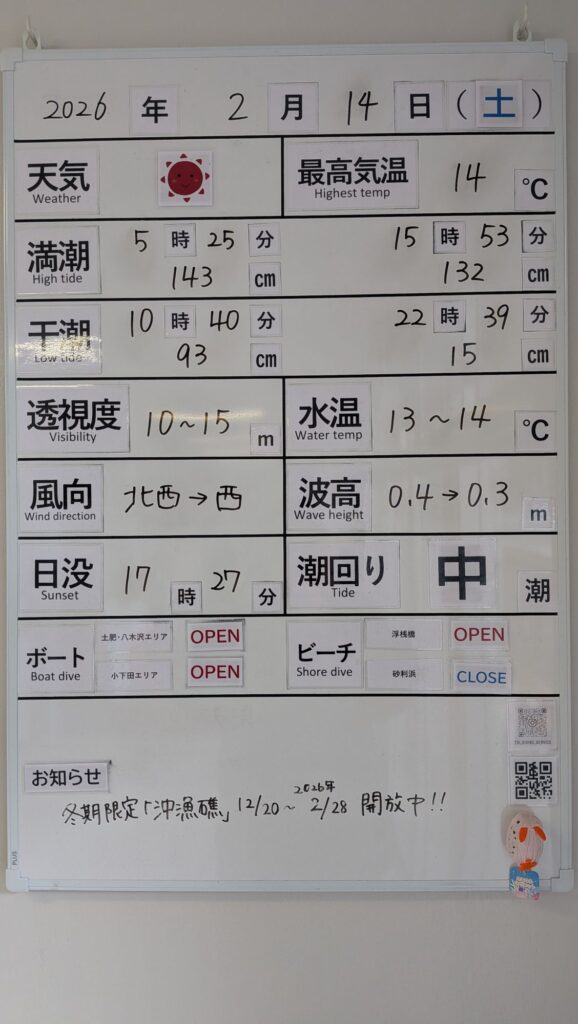 2026 年 2 月 14 日 (土)
天気 Weather
最高気温 Highest temp 14 ℃
満潮 High tide
5 時 25 分 15 時 53 分
143 cm 132 cm
干潮 Low tide
10 時 40 分 22 時 39 分
93 cm 15 cm
透視度 Visibility 10~15 m
水温 Water temp 13~14 ℃
風向 Wind direction 北西→西
波高 Wave height 0.4→0.3 m
日没 Sunset 17 時 27 分
潮回り Tide 中 潮
ボート Boat dive
土肥・八木沢エリア OPEN
小下田エリア OPEN
ビーチ Shore dive
浮桟橋 OPEN
砂利浜 CLOSE
お知らせ
冬期限定「沖漁礁」12/20~2026年2/28 開放中!!
PLUS